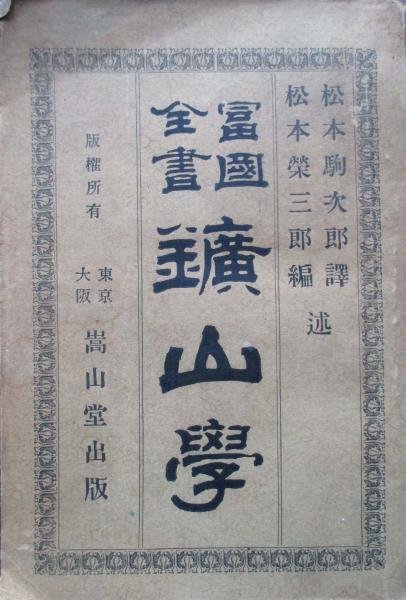 松本駒次郎譯
松本榮三郎編
述
富國
全書
鑛山學
版權所有
東京
大阪
嵩山堂出版